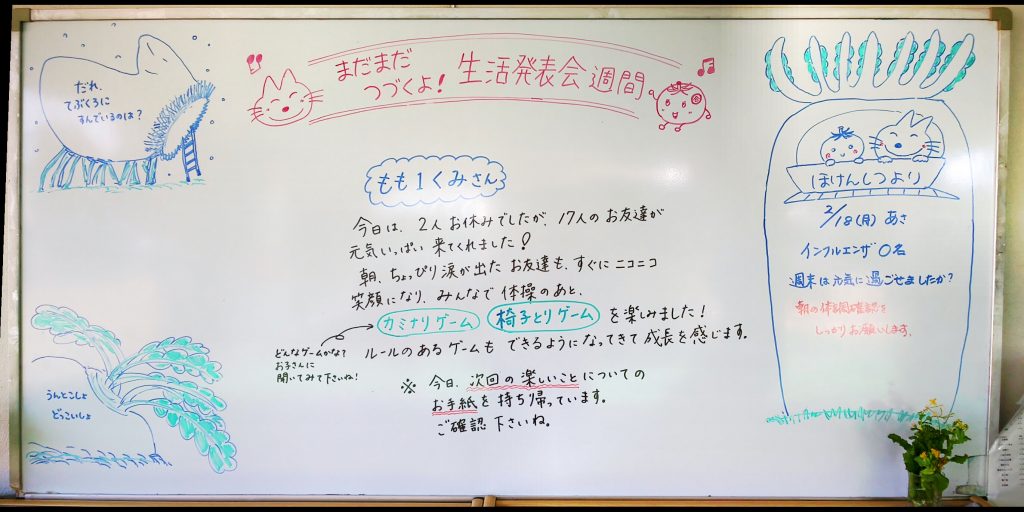 だれ、
てぶくろに
すんでいるのは？
まだまだ
つづくよ！
生活発表会週間
もも１くみさん
今日は、２人お休みでしたが、17人のお友達が
元気いっぱい来てくれました！
朝、ちょっぴり涙が出たお友達も、すぐにニコニコ
笑顔になり、みんなで体操のあと、
カミナリゲーム 椅子とりゲーム を楽しみました！
どんなゲームかなって
お子さんに
聞いてみて下さいね！
ルールのあるゲームもできるようになってきて成長を感じます。
※ 今日、次回の楽しいことについての
お手紙を持ち帰っています。
ご確認下さいね。
うんとこしょ
どっこいしょ
ほけんしつより
2/18(月) あさ
インフルエンザ０名
週末は元気に過ごせましたか？
朝の体調確認を
しっかりお願いします。